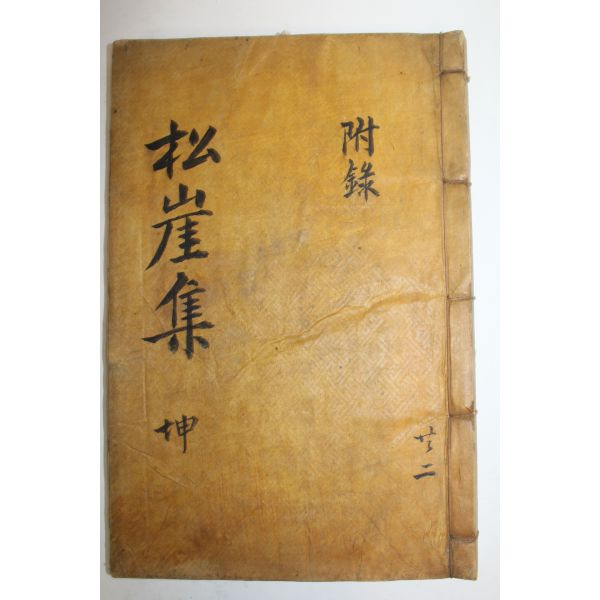 附錄
松崖集 坤
共二